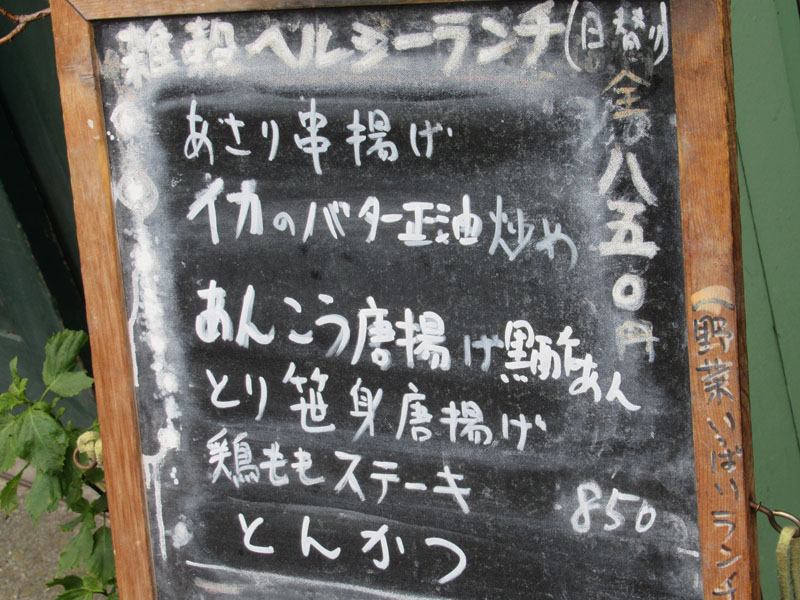 雑穀ヘルシーランチ(日替り)
全八五〇円
あさり串揚げ
イカのバター正油炒め
あんこう唐揚げ黒酢あん
とり笹身唐揚げ
鶏ももステーキ 850
とんかつ
野菜いっぱいランチ